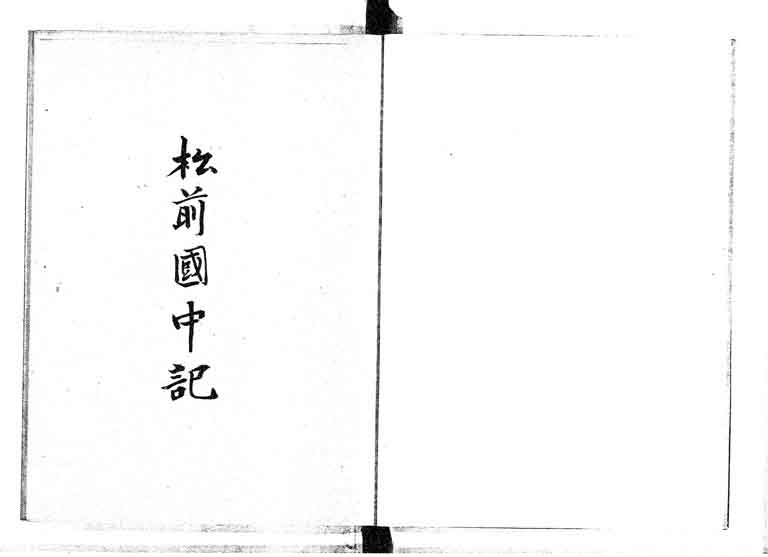 松前國中記